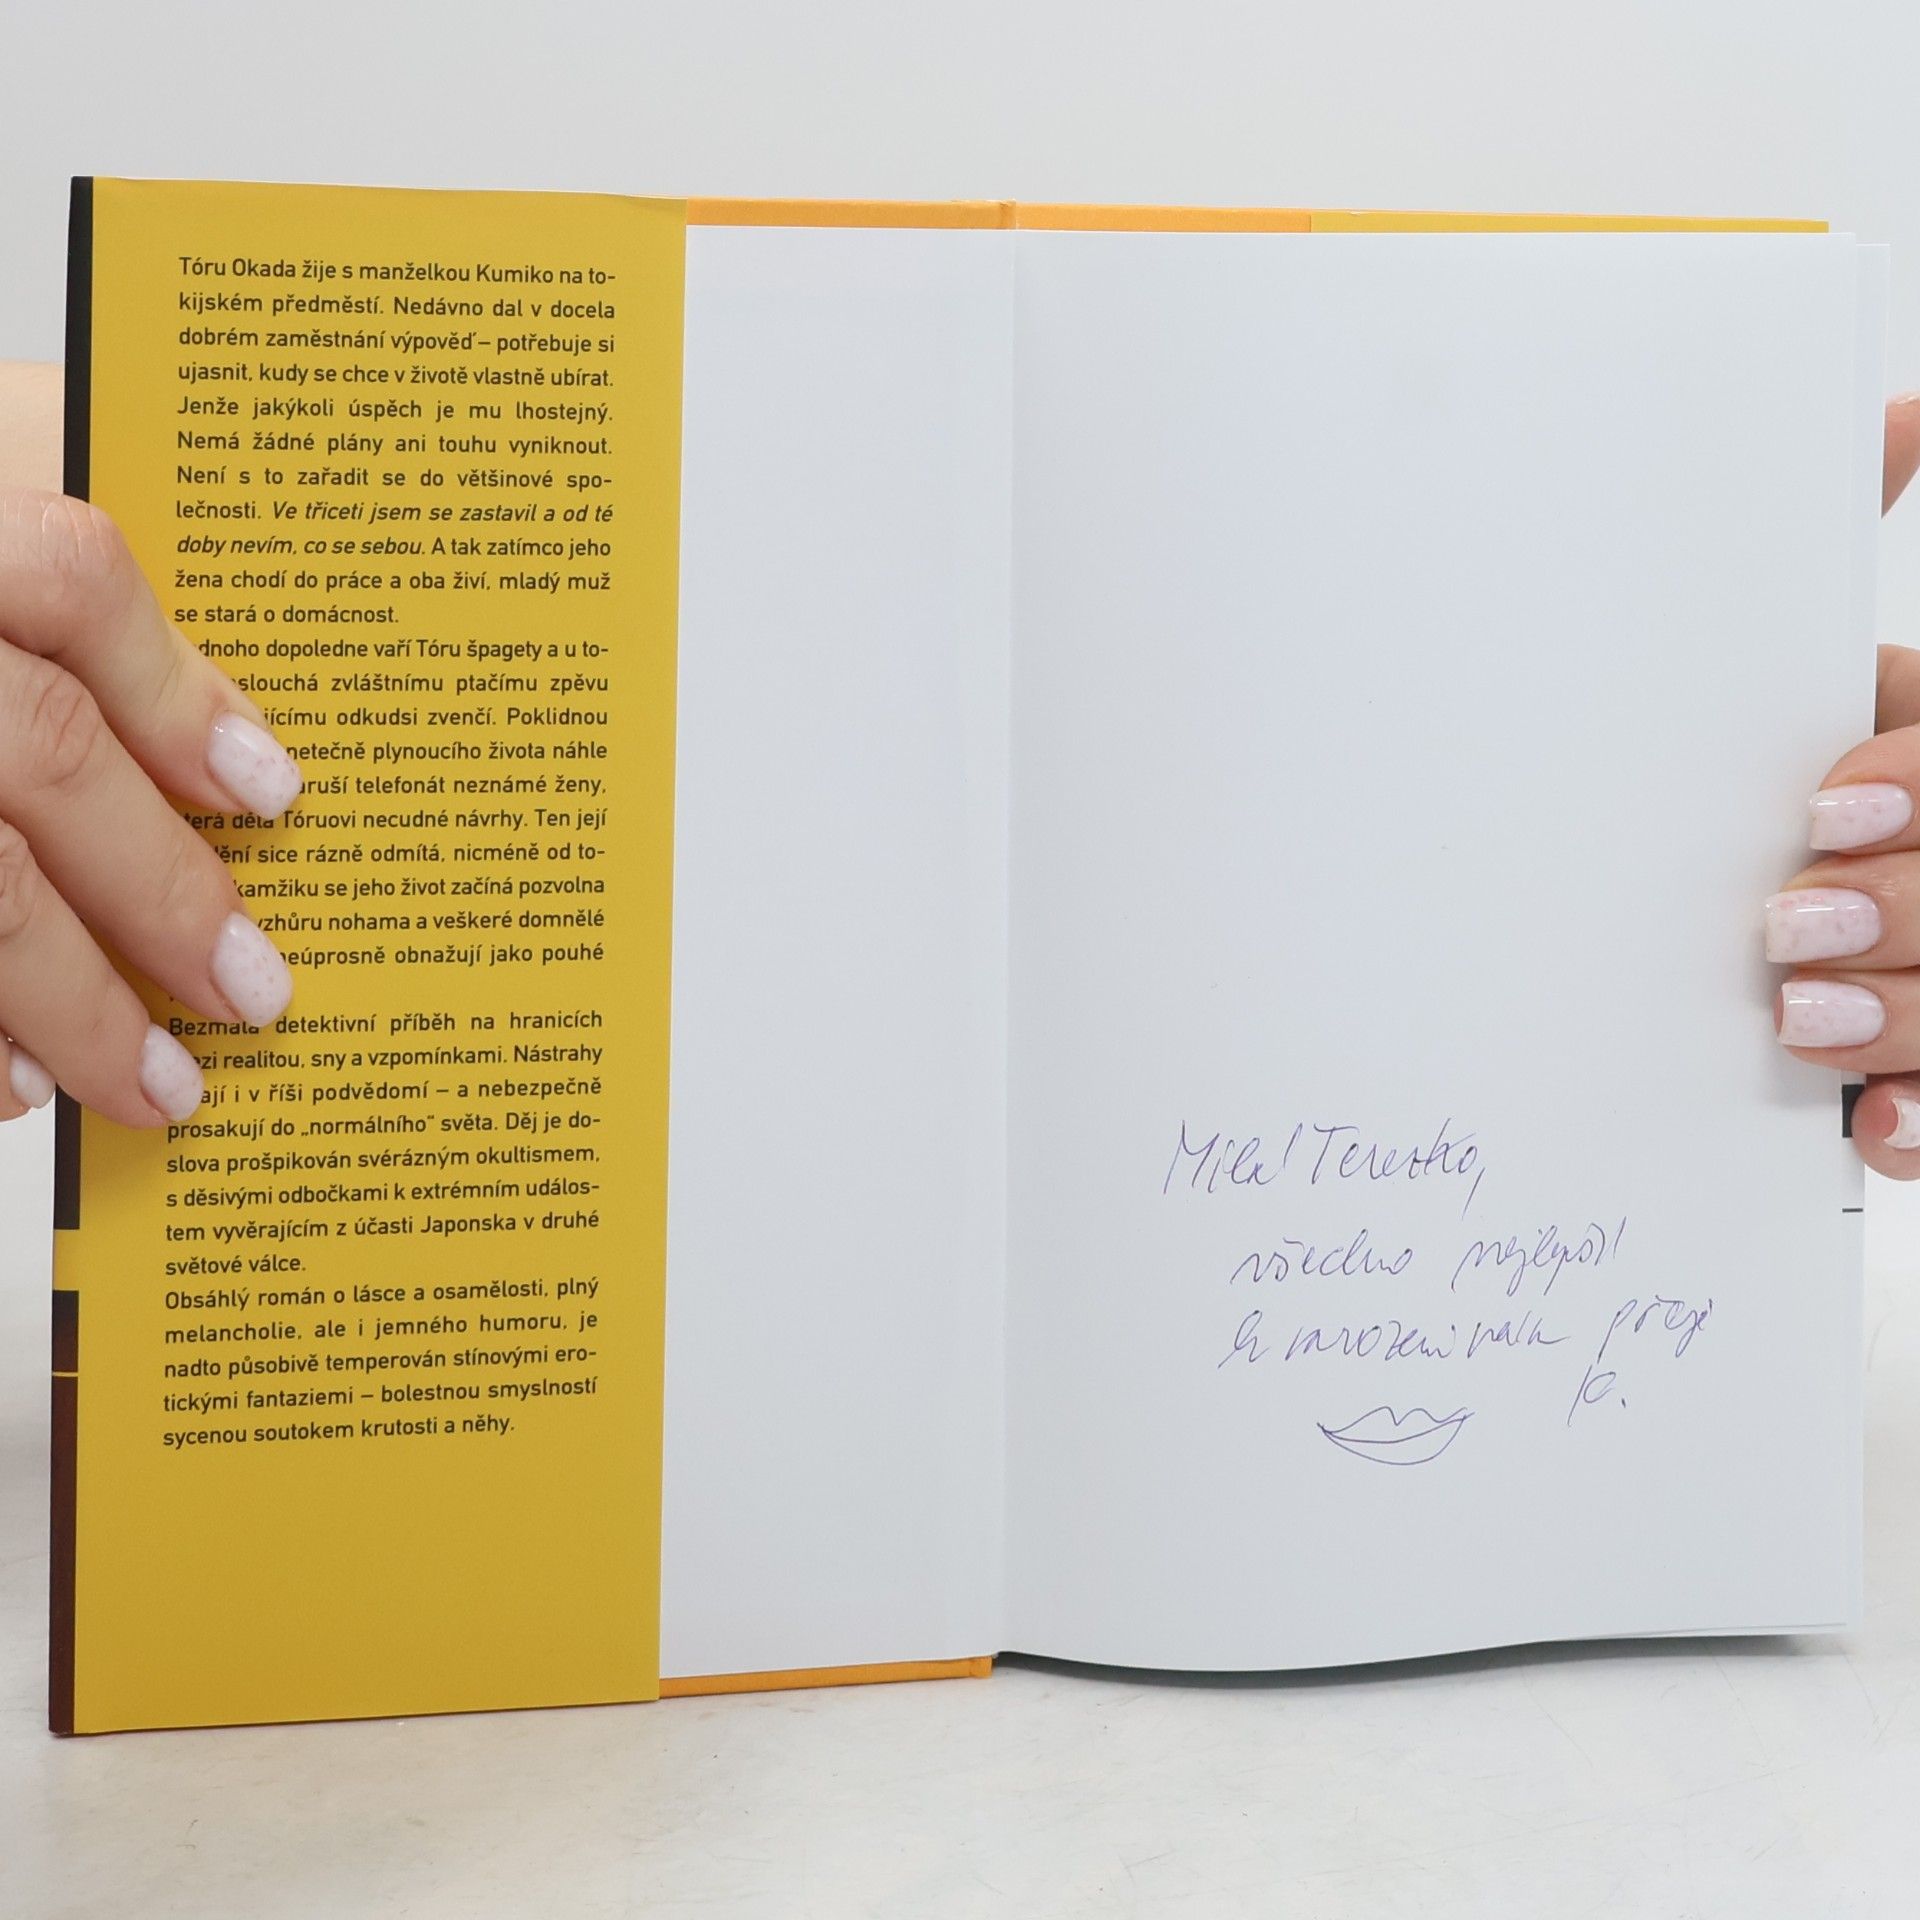 Tóru Okada žije s manželkou Kumiko na to-
kijském předměstí. Nedávno dal v docela
dobrém zaměstnání výpověď – potřebuje si
ujasnit, kudy se chce v životě vlastně ubírat.
Jenže jakýkoli úspěch je mu lhostejný.
Nemá žádné plány ani touhu vyniknout.
Není s to zařadit se do většinové spo-
lečnosti. Ve třiceti jsem se zastavil a od té
doby nevím, co se sebou. A tak zatímco jeho
žena chodí do práce a oba živí, mladý muž
se stará o domácnost.
dnoho dopoledne vaří Tóru špagety a u to-
slouchá zvláštnímu ptačímu zpěvu
jícímu odkudsi zvenčí. Poklidnou
netečně plynoucího života náhle
aruší telefonát neznámé ženy,
terá dělá Tóruovi necudné návrhy. Ten její
ění sice rázně odmítá, nicméně od to-
kamžiku se jeho život začíná pozvolna
vzhůru nohama a veškeré domnělé
neúprosně obnažují jako pouhé
Bezmála detektivní příběh na hranicích
ezi realitou, sny a vzpomínkami. Nástrahy
ají i v říši podvědomí – a nebezpečně
prosakují do „normálního“ světa. Děj je do-
slova prošpikován svérázným okultismem,
s děsivými odbočkami k extrémním událos-
tem vyvěrajícím z účasti Japonska v druhé
světové válce.
Obsáhlý román o lásce a osamělosti, plný
melancholie, ale i jemného humoru, je
nadto působivě temperován stínovými ero-
tickými fantaziemi – bolestnou smyslností
sycenou soutokem krutosti a něhy.
Milá Terezko,
všechno nejlepší
k narozeninám přeje
K.